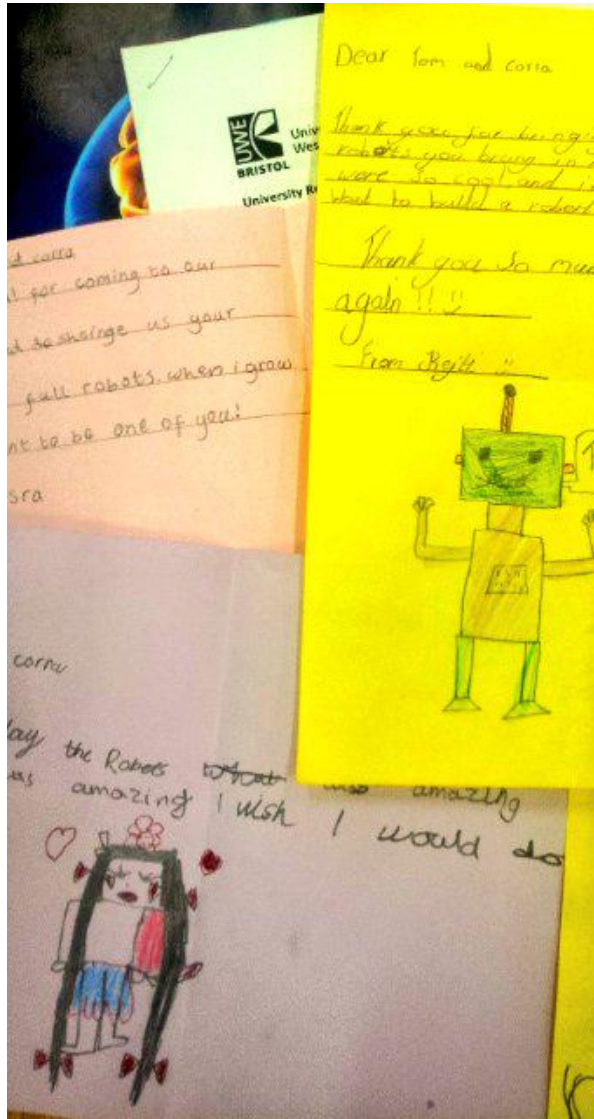 UWE
BRISTOL
Univ
Wes
University R
Dear Tom and corra
Thank you for bringi
robots you bring in
were so cool and i
Want to build a robert
Thank you So mu
again !!
From
corra
for coming to our
us your
full robots. when i grow
nt to be one of you!
sra
corra
ay the Robots was amazing
as amazing I wish I would do